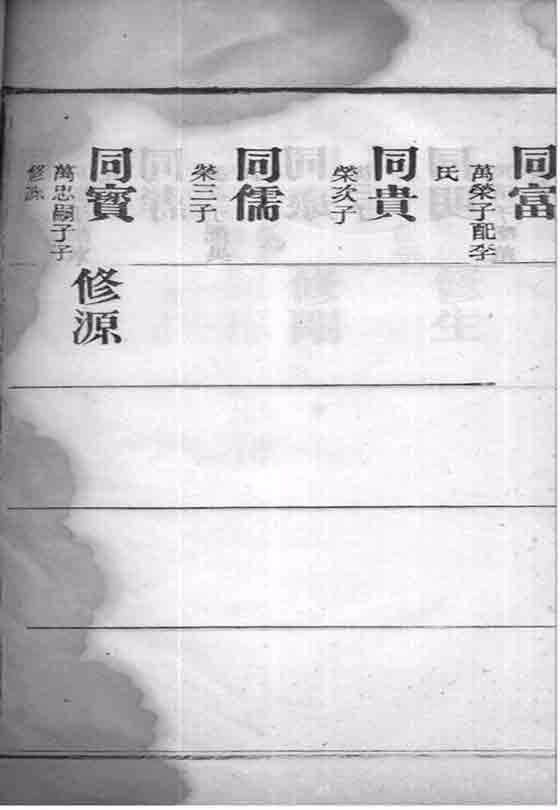 同富
萬榮子配李
氏
同貴
榮次子
同儒
榮三子
同寳
萬忠嗣子子
修源
修源